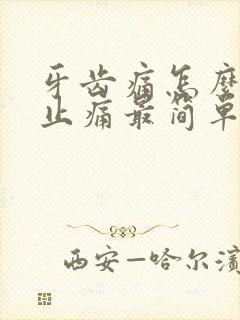 牙齿痛怎麽
止痛最简单
西安—哈尔滨